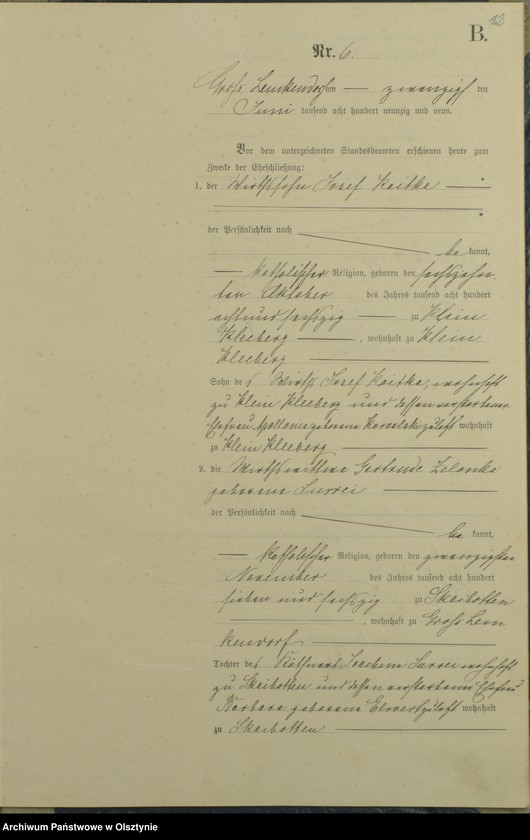 12
B.
Nr. 6.
Groß Lemkendorf am — zwanzigsten
Juni tausend acht hundert neunzig und neun.
Vor dem unterzeichneten Standesbeamten erschienen heute zum
Zwecke der Eheschließung:
1. der Wirthssohn Josef Kaitka —
der Persönlichkeit nach
be kannt,
— katholischer Religion, geboren den sechszehn-
ten Oktober des Jahres tausend acht hundert
achtundsechszig — zu Klein
Kleeberg —, wohnhaft zu Klein
Kleeberg —
Sohn des Wirths Josef Kaitka, wohnhaft
zu Klein Kleeberg und dessen verstorbener
Ehefrau geborene zuletzt wohnhaft
zu Klein Kleeberg —
2. die Wirthswittwe Gertrude
geborene —
der Persönlichkeit nach
be kannt,
— katholischer Religion, geboren den zwanzigsten
November des Jahres tausend acht hundert
sieben und sechszig zu Skaibotten
—, wohnhaft zu Groß Lem
kendorf —
Tochter des Käthners Joachim wohnhaft
zu Skaibotten und dessen verstorbener Ehefrau
Barbara geborene zuletzt wohnhaft
zu Skaibotten —
Archiwum Państwowe w Olsztynie